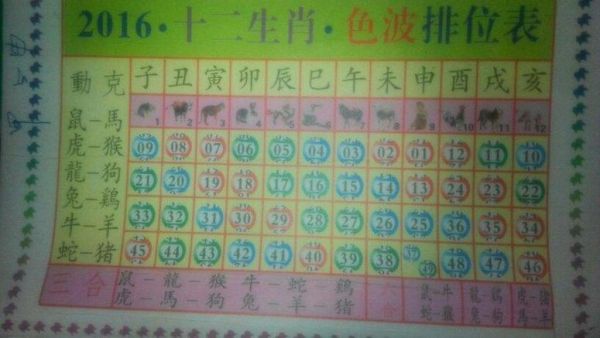 2016·十二生肖·色波排位表
動克 子 丑 寅 卯 辰 巳 午 未 申 酉 戌 亥
鼠－馬 1 2 3 4 5 6 7 8 9 10 11 12
虎－猴 09 08 07 06 05 04 03 02 01 12 11 10
龍－狗 21 20 19 18 17 16 15 14 13 24 23 22
兔－鷄 33 32 31 30 29 28 27 26 25 36 35 34
牛－羊 45 44 43 42 41 40 39 38 37 48 47 46
蛇－猪 49
三合 鼠－龍－猴 牛－蛇－鷄 六合 鼠－牛 龍－鷄 虎－猪
虎－馬－狗 兔－羊－猪 蛇－猴 兔－狗 馬－羊